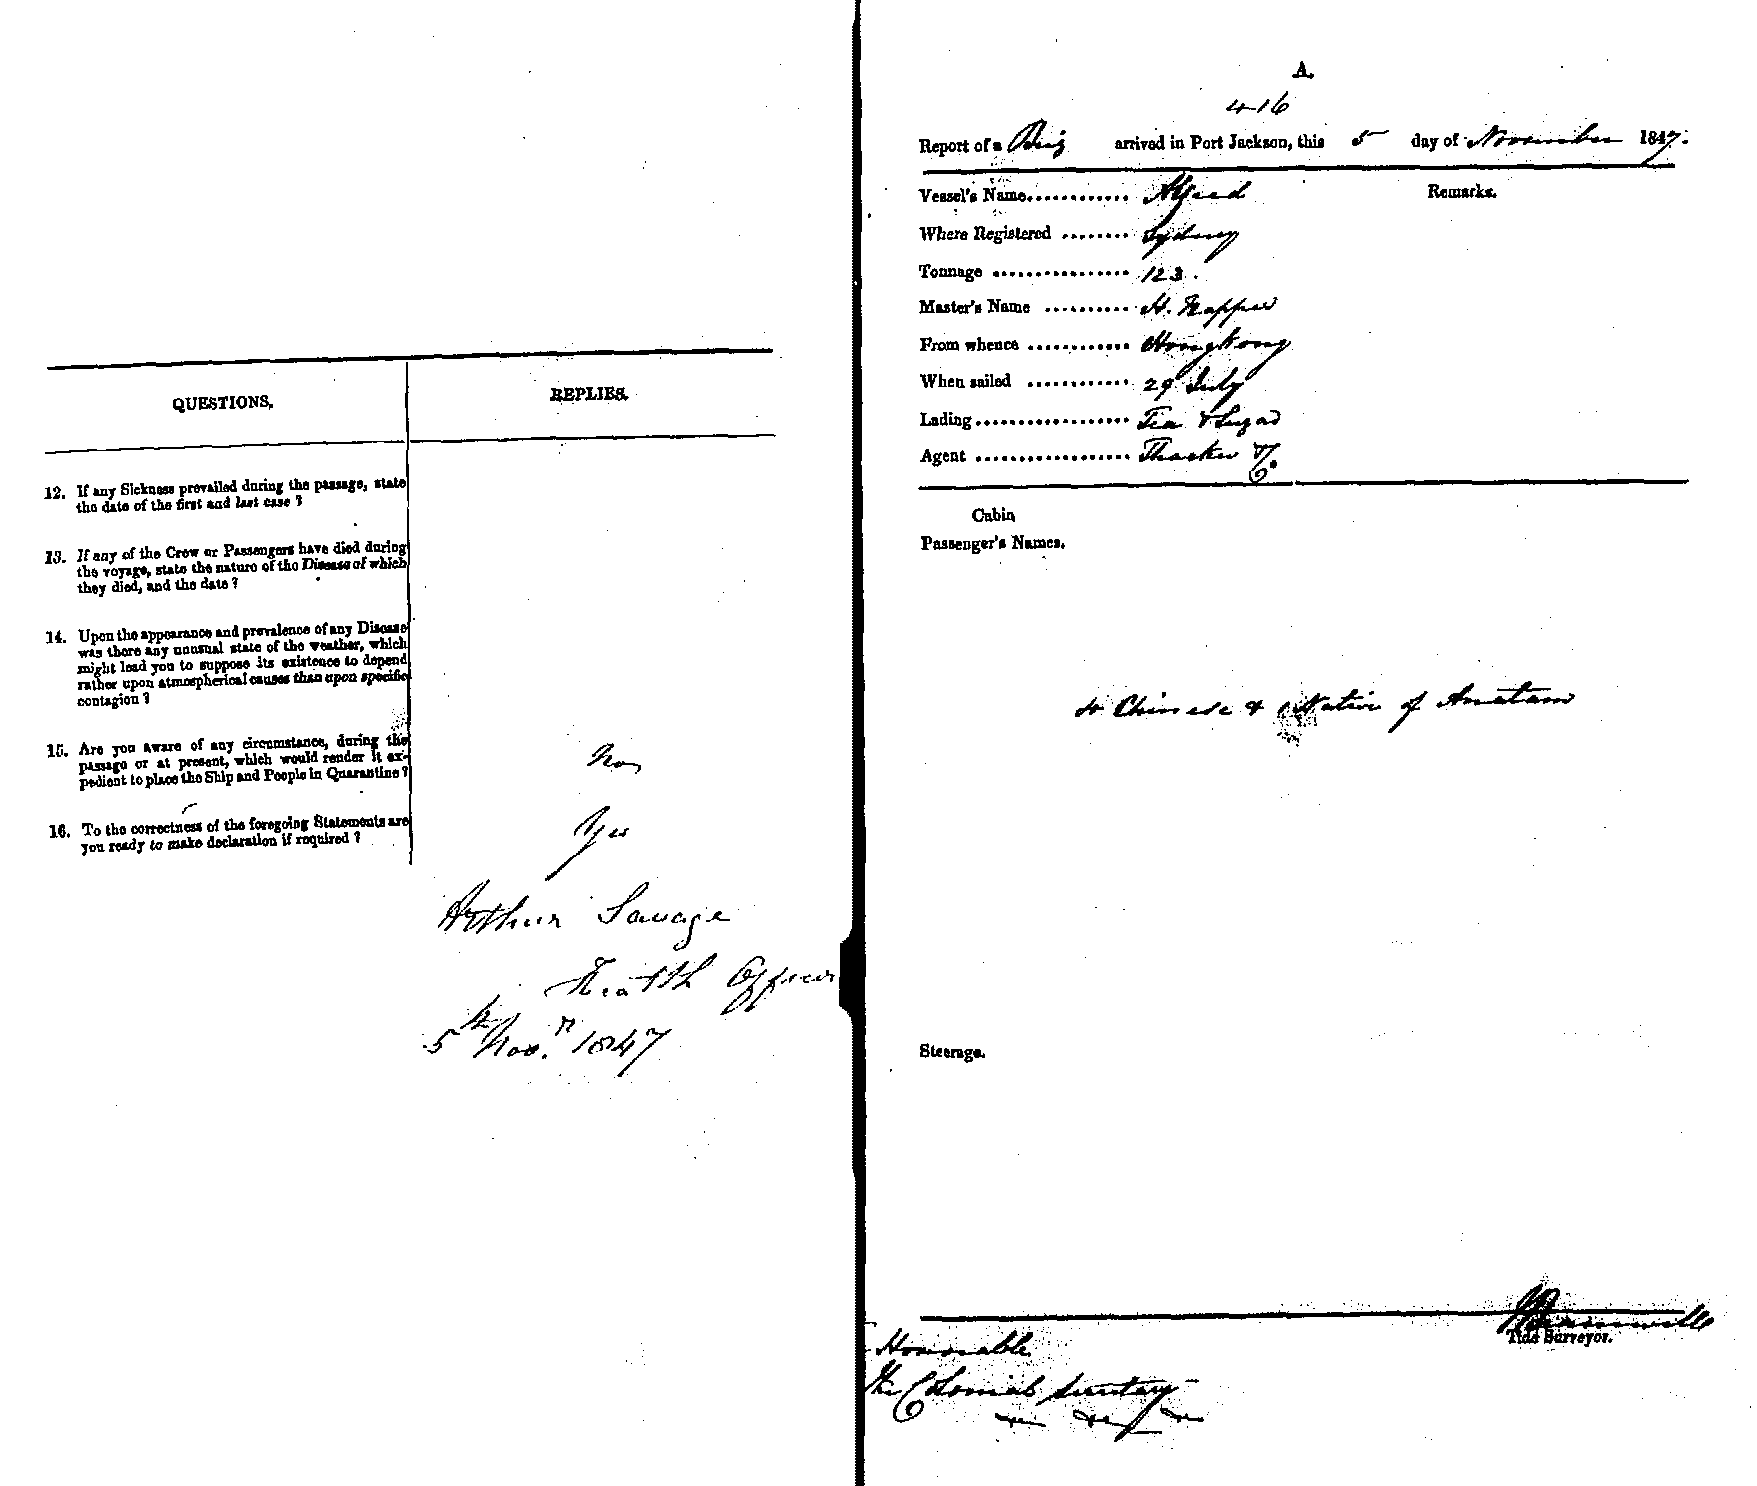 QUESTIONS.
REPLIES.
12. If any Sickness prevailed during the passage, state
the date of the first and last case ?
13. If any of the Crew or Passengers have died during
the voyage, state the nature of the Disease of which
they died, and the date ?
14. Upon the appearance and prevalence of any Disease
was there any unusual state of the weather, which
might lead you to suppose its existence to depend
rather upon atmospherical causes than upon specific
contagion ?
15. Are you aware of any circumstance, during the
passage or at present, which would render it ex-
pedient to place the Ship and People in Quarantine ?
No
16. To the correctness of the foregoing Statements are
you ready to make declaration if required ?
Yes
Arthur Savage
Health Officer
5th Novr. 1847
A.
416
Report of a Brig arrived in Port Jackson, this 5 day of November 1847.
Vessel's Name............ Alfred
Remarks.
Where Registered ........ Sydney
Tonnage ................ 123.
Master's Name .......... H. Napper
From whence ............ Hong Kong
When sailed ............ 29 July
Lading.................. Tea & Sugar
Agent .................. Thacker & Co.
Cabin
Passenger's Names.
Chinese & 1 Native of Anatam
Steerage.
Tide Surveyor.
Honorable
The Colonial Secretary